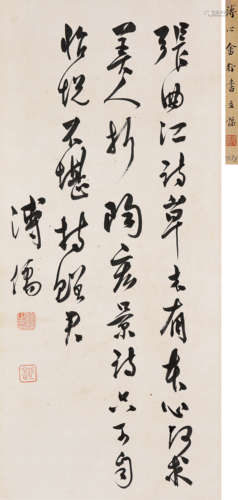 張曲江詩草木有本心何求
美人折陶宏景詩只可自
怡悅不堪持贈君
溥儒